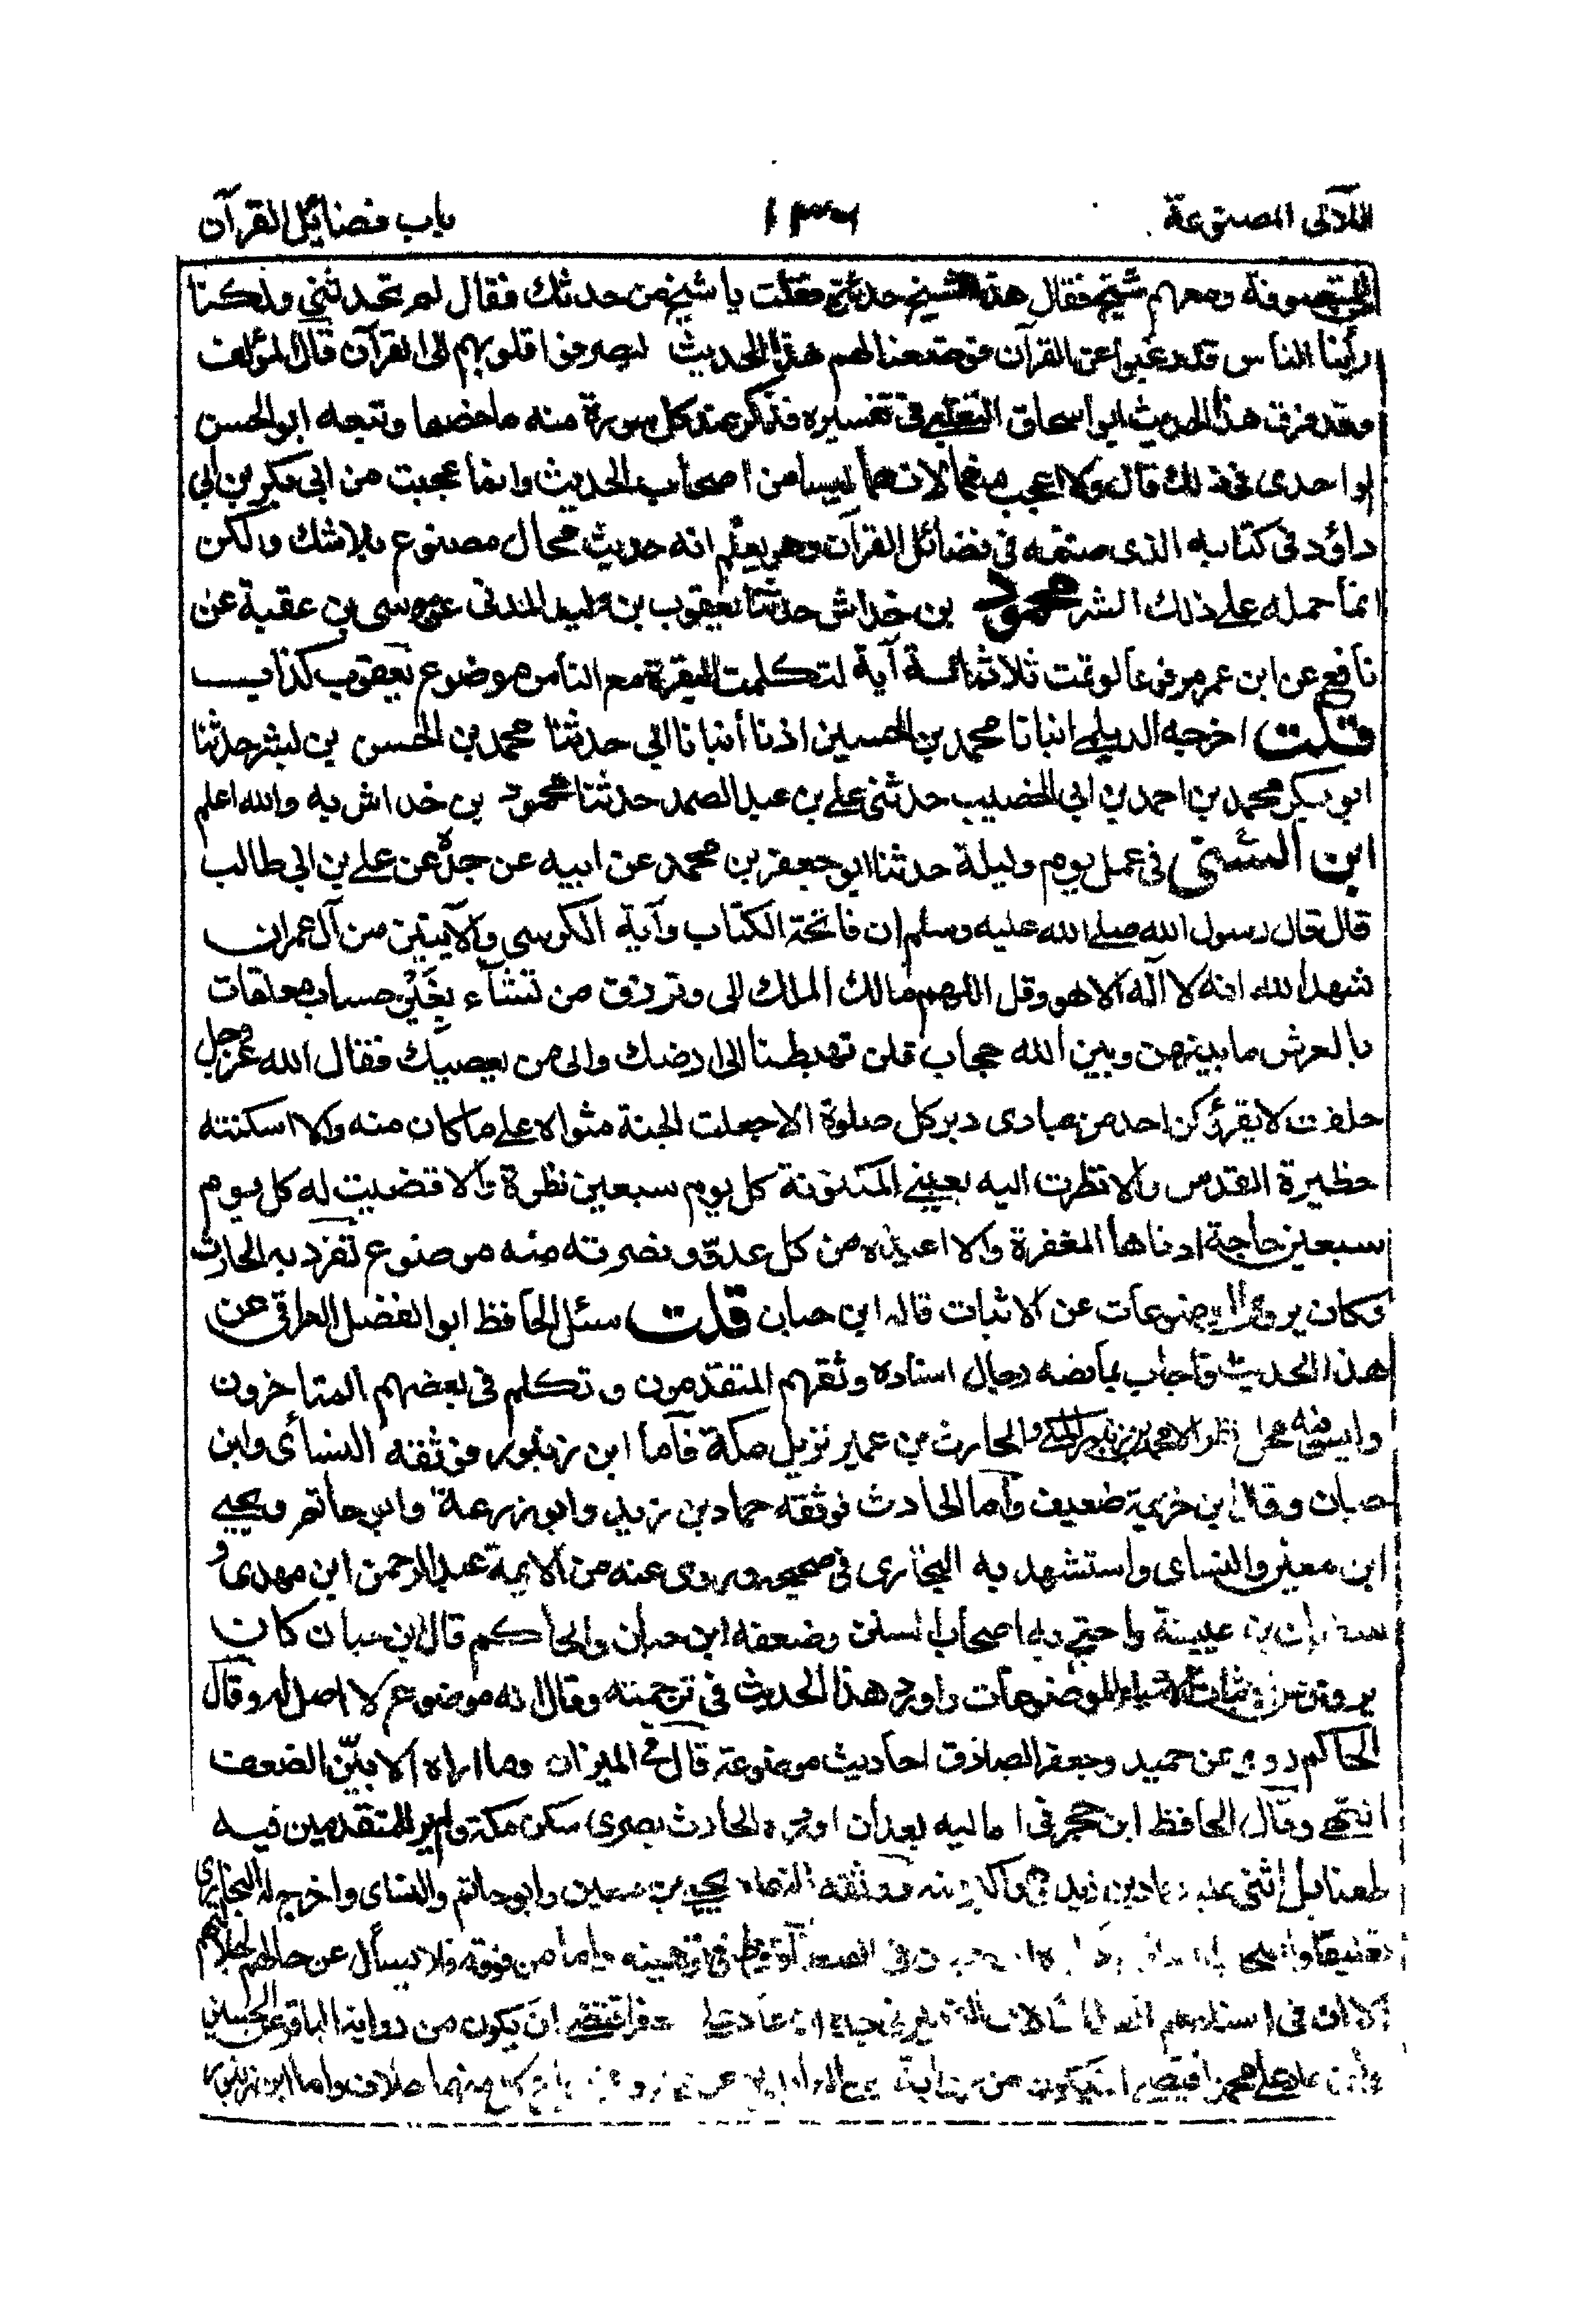 اللآلئ المصنوعة
باب فضائل القرآن
المتصوفة ومعهم شيخ فقال هذا الشيخ حدثني فقلت يا شيخ من حدثك فقال لم يحدثني ولكنا
رأينا الناس قد رغبوا عن القرآن فوضعنا لهم هذا الحديث ليصرفوا قلوبهم الى القرآن قال المؤلف
وقد فرق هذا الحديث ابو اسحاق الثعلبي في تفسيره فذكر عند كل سورة منه ما خصها وتبعه ابو الحسن
لواحدى فى ذلك قال ولا اعجب منهما لانهما ليسا من اصحاب الحديث وانما عجبت من ابى بكر بن ابي
داؤد فى كتابه الذى صنفه فى فضائل القرآن وهو يعلم انه حديث محال مصنوع بلا شك ولكن
انما حمله على ذلك الشر محمود بن خداش حدثنا يعقوب بن وليد المدنى عن موسى بن عقبة عن
نافع عن ابن عمر مرفوعا لو تمت ثلاثمائة آية لتكلمت البقرة مع الناس موضوع يعقوب كذاب
قلت اخرجه الديلمى انبانا محمد بن الحسين اذنا أنبانا ابي حدثنا محمد بن الحسن بن بشر حدثنا
ابو بكر محمد بن احمد بن ابى الخضيب حدثنى على بن عبد الصمد حدثنا محمود بن خداش به والله اعلم
ابن السنى فى عمل يوم وليلة حدثنا ابو جعفر بن محمد عن ابيه عن جده عن على بن ابي طالب
قال قال رسول الله صلى الله عليه وسلم ان فاتحة الكتاب وآية الكرسى والآيتين من آل عمران
شهد الله انه لا آله الا هو وقل اللهم مالك الملك الى وترزق من تشآء بغير حساب معلقات
بالعرش ما بينهن وبين الله حجاب قلن تهبطنا الى ارضك والى من يعصيك فقال الله عز وجل
حلفت لا يقرؤكن احد من عبادى دبر كل صلوة الا جعلت الجنة مثواه على ما كان منه والا اسكنته
حظيرة القدس والا نظرت اليه بعينى المكنونة كل يوم سبعين نظرة والا قضيت له كل يوم
سبعين حاجة ادناها المغفرة والا اعيذه من كل عدو ونصرته منه موضوع تفرد به الحارث
وكان يروى الموضوعات عن الاثبات قاله ابن حبان قلت سئل الحافظ ابو الفضل العراقى عن
هذا الحديث فأجاب بما نصه رجال اسناده وثقهم المتقدمون وتكلم فى بعضهم المتاخرون
وليس فيه محل نظر الا محمد بن زنبور المكى والحارث بن عمير نزيل مكة فأما ابن زنبور فوثقه النسأى وابن
حبان وقال ابن خزيمة ضعيف وأما الحارث فوثقه حماد بن زيد وابو زرعة وابو حاتم ويحيى
ابن معين والنساى واستشهد به البخارى فى صحيحه وروى عنه من الايمة عبد الرحمن ابن مهدى و
سفيان بن عيينة واحتج به اصحاب السنن وضعفه ابن حبان والحاكم قال ابن حبان كان
يروى عن الاثبات الاشياء الموضوعات واورد هذا الحديث فى ترجمته وقال انه موضوع لا اصل له وقال
الحاكم روى عن حميد وجعفر الصادق احاديث موضوعة قال فى الميزان وما اراه الا بيّن الضعف
انتهى وقال الحافظ ابن حجر فى اماليه بعد ان اورده الحارث بصرى سكن مكة ولم ير للمتقدمين فيه
طعنا بل اثنى عليه حماد بن زيد ووثقه يحيى بن معين وابو حاتم والنساى واخرج له البخارى
تعليقا فى توهينه واما من فوقه فلا يسأل عن حالهم لجلالتهم
الا ان فى اسنادهم ان يكون من رواية الباقر عن الحسين
منهما خلاف واما ابن زنبور